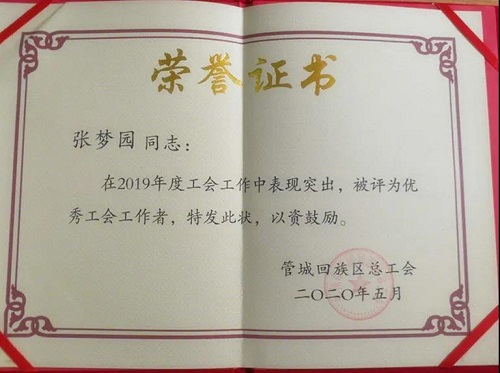 荣誉证书
张梦园 同志：
在2019年度工会工作中表现突出，被评为优
秀工会工作者，特发此状，以资鼓励。
管城回族区总工会
二〇二〇年五月